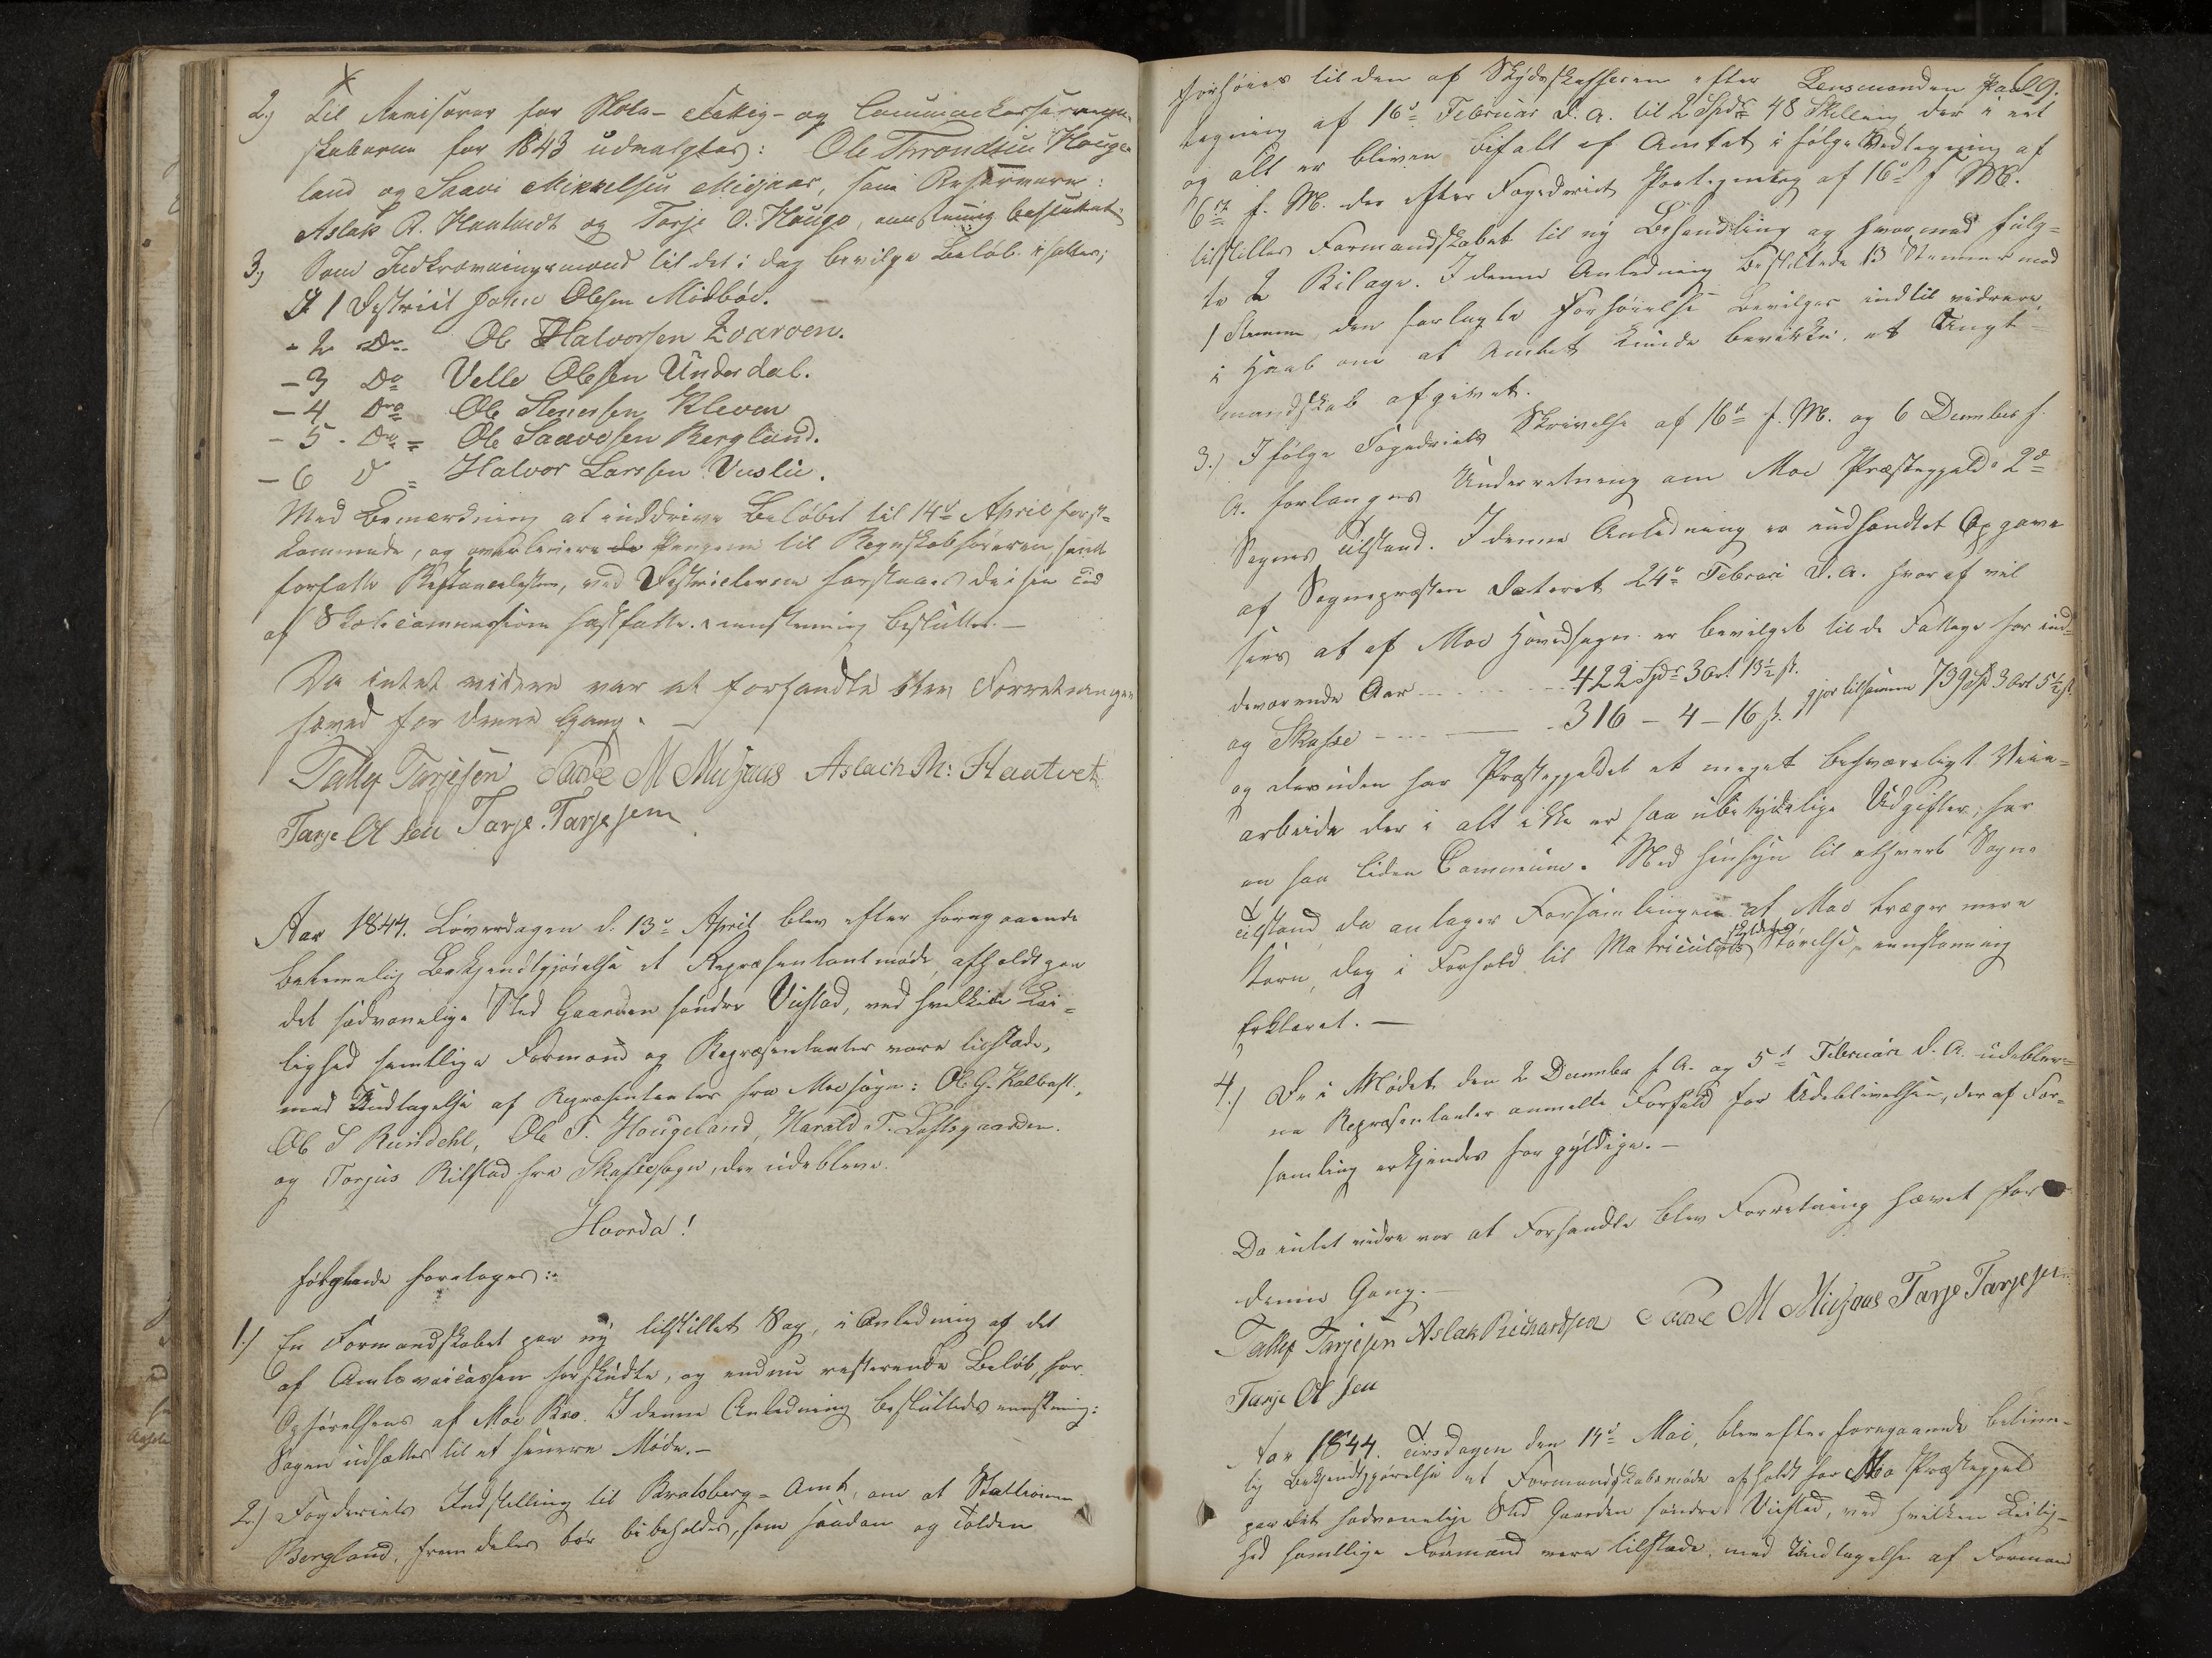 2) Til Revisorer for Skole- Fattig- og Communekasseregn-
skaberne for 1843 udvalgtes: Ole Throndsen Houge-
land og Saavi Mikkelsen Midjaas, som Reservere:
Aslak R. Haatvedt og Torje O. Haugo, eenstemmig besluttet.
3) Som Indkrævningsmænd til det i dag bevilge Beløb isættes;
I 1 Destrict John Olsen Midbøe.
- 2 Do Ole Halvorsen Qvarven.
- 3 Do Velle Olesen Underdal.
- 4 Do Ole Stenersen Kleven
- 5 - Do = Ole Saavesen Berglund.
- 6 D = Halvor Larssen Vuslie.
Med Bemærkning at inddrive Beløbet til 14d April først-
kommende, og overlevere Pengene til Regnskabsføreren, samt
forfatte Restancelisten, ved Destricterne forstaaes de i sin Tid
af Skolecommissionen fastsatte. eenstemmig besluttet. —
Da intet videre var at forhandle blev Forretningen
hæved for denne Gang. —
Tallef Tarjesen Saave M Midjaas Aslach R: Haatvet
Tarje Olsen Tarje Tarjesen
Aar 1844. Løverdagen d. 13d April blev efter foregaaende
betimelig Bekjendtgjørelse et Repræsentantmøde afholdt paa
det sædvanelige Sted Gaarden søndre Viistad, ved hvilken Lei-
lighed samtlige Formænd og Repræsentanter vare tilstæde,
med Undtagelse af Repræsentanter fra Moe sogn: Ole G. Kalbast,
Ole S Rundehl, Ole T. Hougeland, Harald T. Loftsgaarden.
og Torjus Rilstad fra Skafsesogn, der udebleve.
Hvorda!
følgende foretoges:
1.) En Formandskabet paa ny tilstillet Sag, i Anledning af det
af Amtsveicassen forskudte, og endnu resterende Beløb, for
Opførelsens af Moe Bro. I denne Anledning besluttedes eenstemmig:
Sagen udsættes til et senere Møde. —
2.) Fogderiets Indstilling til Bratsberg-Amt, om at Stationen
Bergland, fremdeles bør bibeholdes, som saadan og Tolden
69.
forhøies til den af Skydsskafferen efter Lensmanden Paa-
tegning af 16d Februar d. A. til 2 Spdr 48 Skilling der i eet
og alt er bleven bifalt af Amtet i følge Vedtegning af
6te f. M. der efter Fogderiets Paategning af 16d f M.
tilstilles Formandskabet til ny Behandling og hvormed fulg-
te 2 Bilage. I denne Anledning besluttede 13 Stemmer mod
1 Stemme, den forlagte Forhøielse bevilges indtil videre,
i Haab om at Amtet kunde bevirke, et
mandskab afgivet.
3.) I følge Fogderiets Skrivelse af 16d f. M. og 6 December f.
A. forlanges Underretning om Moe Præstegjelds 2de
Sognes Tilstand. I denne Anledning er indhentet Opgave
af Sognepræsten dateret 24d Februari d. A. hvoraf vil
sees at af Moe Hovedsogn er bevilget til de Fattige for ind-
deværende Aar - - - - 422 Spdr 3 Ort 13½ ß.
og Skafse - - - — - 316 - 4 - 16 ß. gjør tilsammen 739 Spd 3 Ort 5½ ß.
og desuden har Præstegjeldet et meget besværeligt Veie-
arbeide der i alt ikke er saa ubetydelige Udgifter, for
en saa liden Commune. Med Hensyn til ethvert Sogns
Tilstand, da antager Forsamlingen at Moe trænger mere
Korn, dog i Forhold til Matriculens Skyldens Størelse, eenstemmig
Erklæret. —
4.) De i Mødet den 2 December f A. og 5d Februari d. A. udeblev-
ne Repræsentanter anmelte Forfald for Udeblivelsen, der af For-
samling erkjendes for gyldige. —
Da intet videre var at Forhandle blev Forretning hævet for
denne Gang. —
Tallef Tarjesen Aslak Richardsen Saave M Midjaas Tarje Tarjesen
Tarje Olsen
Aar 1844. Tirsdagen den 14d Mai, blev efter foregaaende betime-
lig Bekjendtgjørelse et Formandskabsmøde afholdt for Mo Præstegjeld
paa det sædvanelige Sted Gaarden søndre Viistad, ved hvilken Leilig-
hed samtlige Formænd vare tilstæde, med Undtagelse af Formand